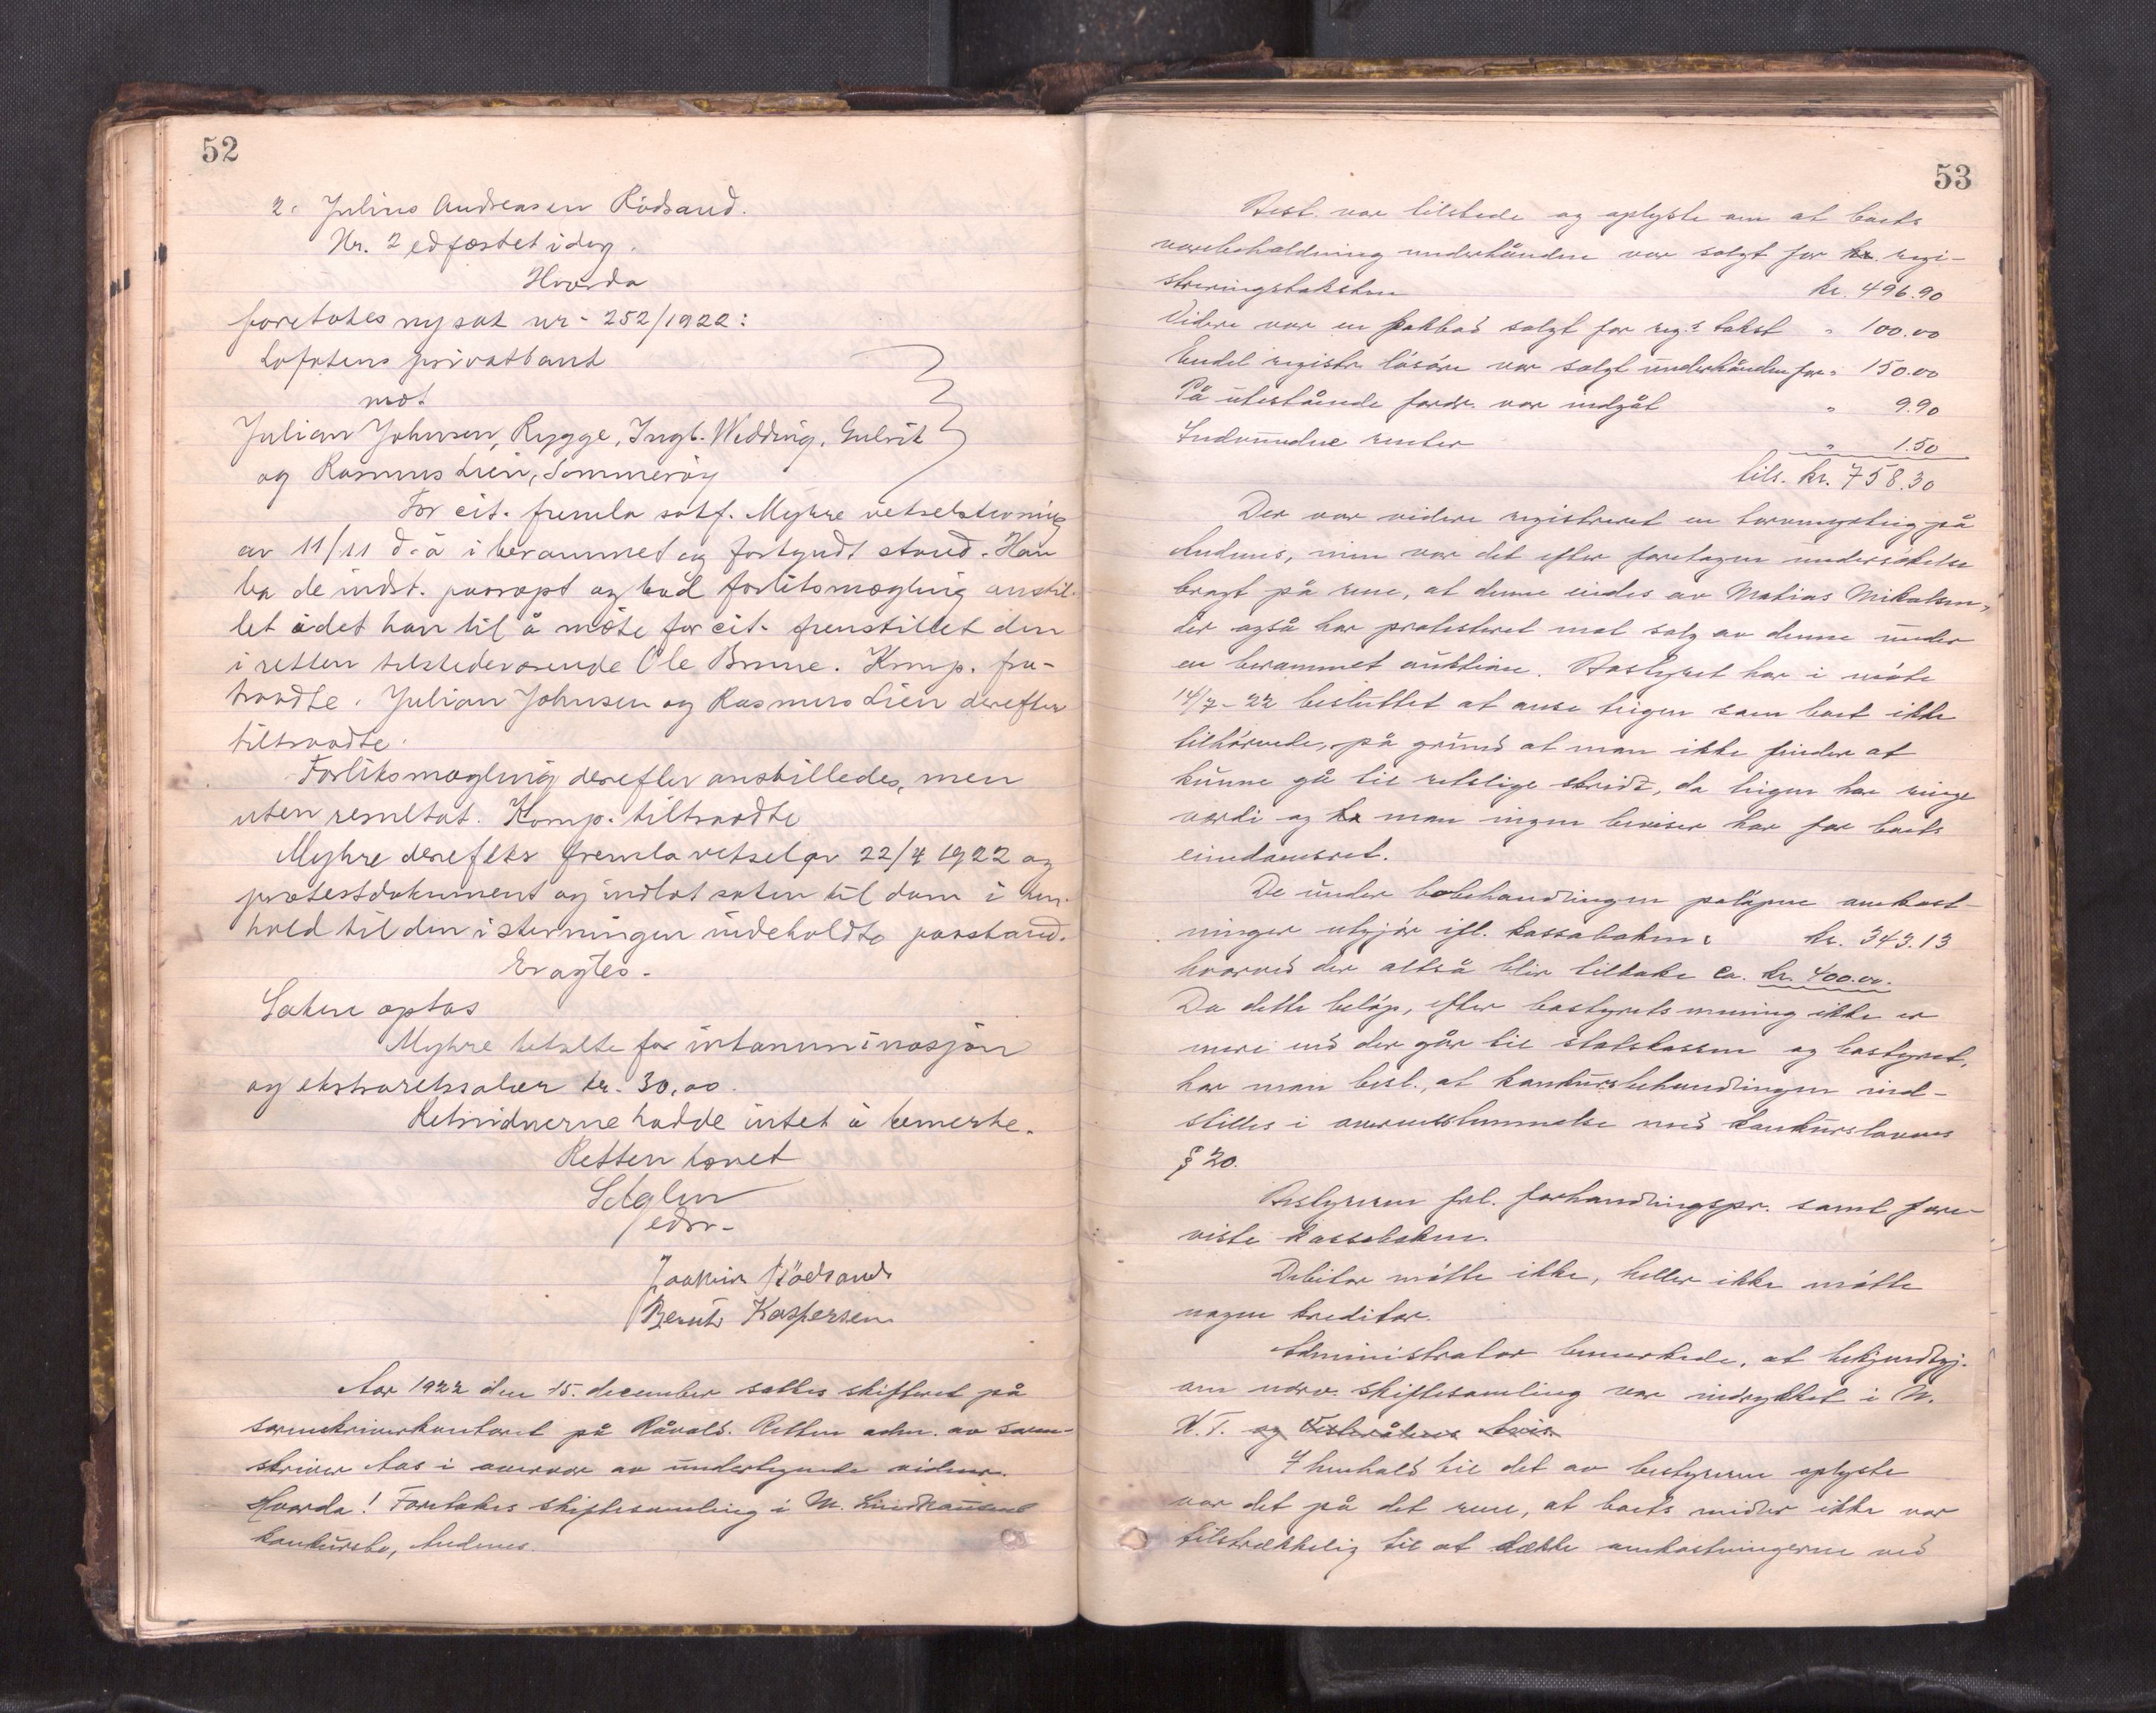 52
2. Julius Andreasen Rödsand.
Nr. 2 edfæstet idag.
Hvorda
foretokes ny sak nr. 252/1922:
Lofotens privatbank
mot
Julian Johnsen, Rygge, Ingb. Wedding, Gulvik
og Rasmus Lien, Sommerøy
For cit. fremla sakf. Myhre vekselstevning
av 11/11 d.å i berammet og forkyndt stand. Han
ba de indst. paaropt og bad forliksmægling anstil-
let idet han til å møte for cit. fremstillet den
i retten tilstedeværende Ole Brune. Komp. fra-
traadte. Julian Johnsen og Rasmus Lien derefter
tiltraadte.
Forliksmægling derefter anstilledes, men
uten resultat. Komp. tiltraadte
Myhre derefter fremla veksel av 22/4 1922 og
protestdokument og indlot saken til dom i hen-
hold til den i stevningen indeholdte paastand.
Eragtes.
Saken optas
Myhre betalte for intamminasjon
og ekstraretssalær kr. 30,00.
Retsvidnerne hadde intet å bemerke.
Retten hævet
edsv.
Joakim Rödsand
Bernt Kaspersen
Aar 1922 den 15. december sattes skifteret på
sorenskriverkontoret på Råvold. Retten adm. av soren-
skriver Aas i overvær av undertegnede vidner.
Hvorda! Foretokes skiftesamling i M. Lindkausens
konkursbo, Andenes.
53
Best. var tilstede og oplyste om at boets
varebeholdning underhånden var solgt for kr. regi-
streringstaksten kr. 496.90
Videre var en pakbod solgt for reg.s takst " 100.00
Endel registr. løsøre var solgt underhånden for " 150.00
På utestående fordr. var indgåt " 9.90
Indvundne renter " 1.50
tils. kr. 758.30
Der var videre registreret en torvmyrteig på
Andenes, men var det efter foretagen undersøkelse
bragt på rene, at denne eides av Matias Mikalsen,
der også har protesteret mot salg av denne under
en berammet auktion. Bostyret har i møte
14/7-22 besluttet at anse teigen som boet ikke
tilhørende, på grund at man ikke finder at
kunne gå til retslige skridt, da teigen har ringe
værdi og man ingen beviser har for boets
eiendomsret.
De under bobehandlingen påløpne omkost-
ninger utgjør ifl. kassaboken: kr. 343.13
hvorved der altså blir tilbake ca. kr. 400.00.
Da dette beløp, efter bostyrets mening ikke er
mere end der går til statskassen og bostyret,
har man besl., at konkursbehandlingen ind-
stilles i overensstemmelse med konkurslovens
§ 20.
Bestyreren frl. forhandlingspr. samt fore-
viste kassaboken.
Debitor møtte ikke, heller ikke møtte
nogen kreditor.
Administrator bemerkede, at bekjendtgj.
om nærv. skiftesamling var indrykket i N.
K.T. og Vesterålens Avis
I henhold til det av bestyreren oplyste
var det på det rene, at boets midler ikke var
tilstrækkelig til at dække omkostningerne ved